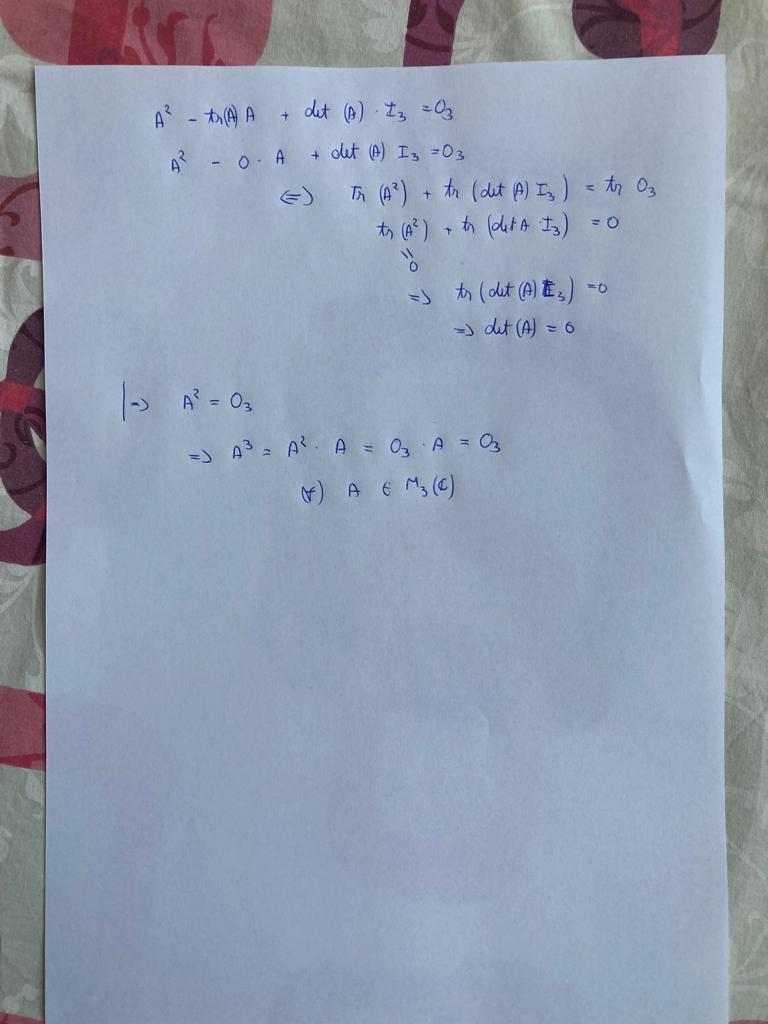 A² - tr(A) A + det (A) · I₃ = O₃
A² - 0 · A + det (A) I₃ = O₃
⇔ Tr (A²) + tr (det (A) I₃) = tr O₃
tr (A²) + tr (det A · I₃) = 0
॥
0
=> tr (det (A) I₃) = 0
=> det (A) = 0
|=> A² = O₃
=> A³ = A² · A = O₃ · A = O₃
(∀) A ∈ M₃(ℂ)